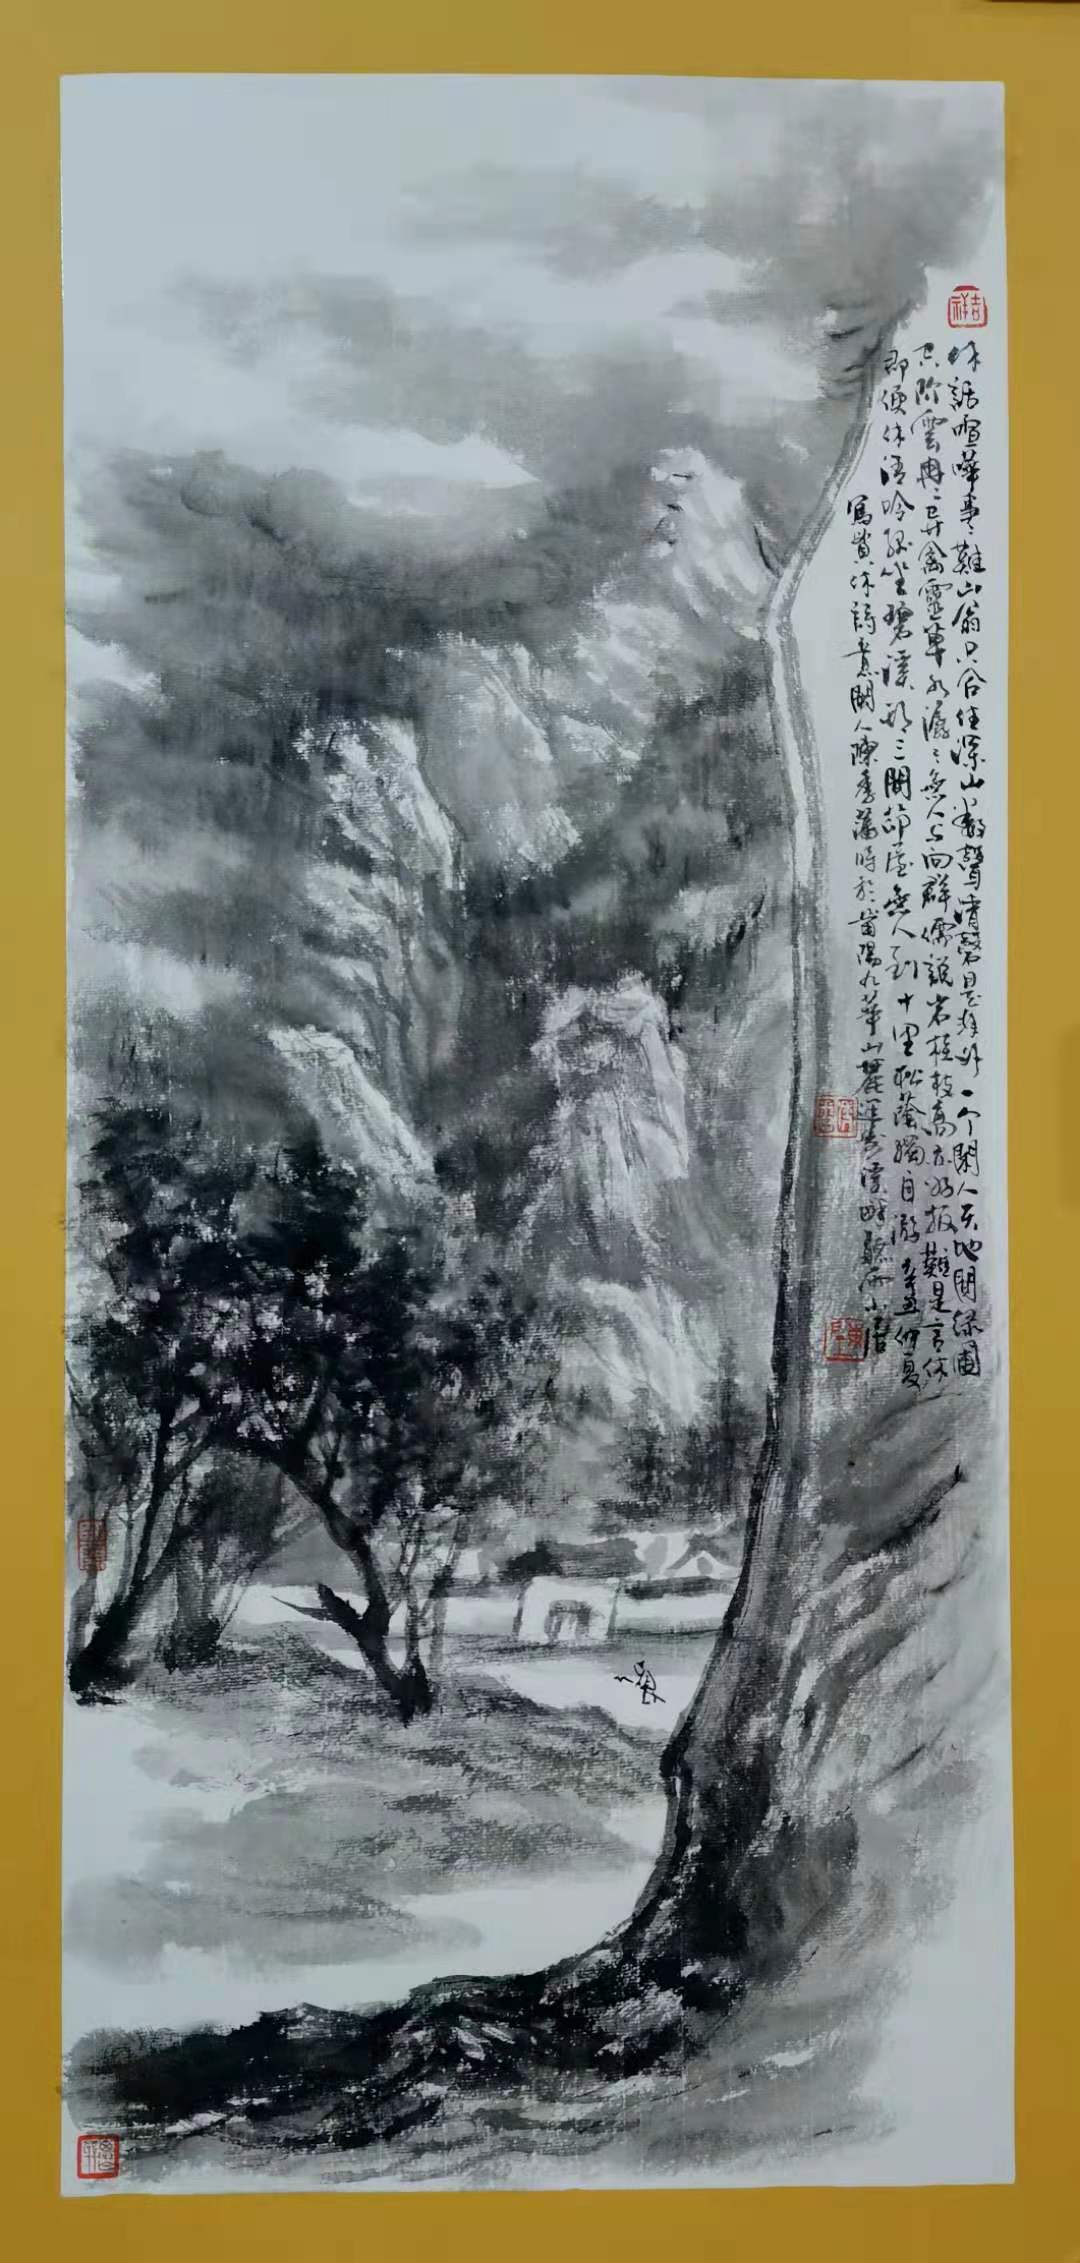 吉祥
休話喧嘩事々難山翁只合住深山數聲清磬是非外一个閑人天地間綠圃
空階雲冉々異禽靈草水潺々無人与向群儒說岩桂枝高亦好扳難是言休
即便休清吟孤坐碧溪頭三間茆屋無人到十里松蔭獨自游辛丑仲夏
寫貫休詩意閑人陳季時於陽九華山麓溪畔聽雨小居